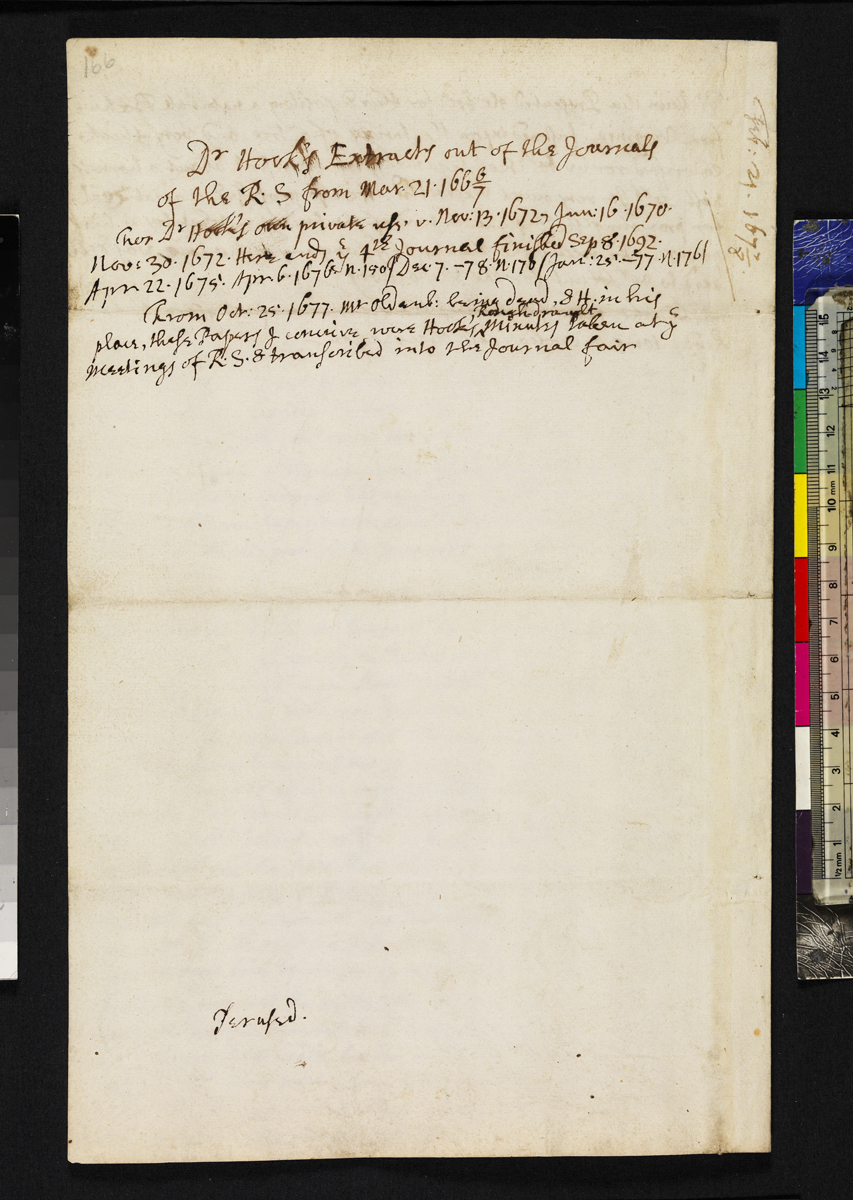 166
Dr Hook's Extracts out of the Journals
of the R. S from Mar. 21. 166 6/7
For Dr Hook's own private use. v. Nov: 13. 1672, Jun: 16. 1670.
Nov: 30. 1672. Here ends ye 4th Journal finished Sep 8. 1692.
Apr. 22. 1675. Apr. 6. 1676. N. 150 / Dec. 7. -78. N. 176 / Jan: 25. -77. N. 176 /
From Oct: 25. 1677. Mr Oldenb: being dead, & H. in his
place, these Papers I conceive were Hook's Rough draught Minuts taken at ye
Meetings of R. S. & transcribed into the Journal fair
Perused.
21. 167 7/8.